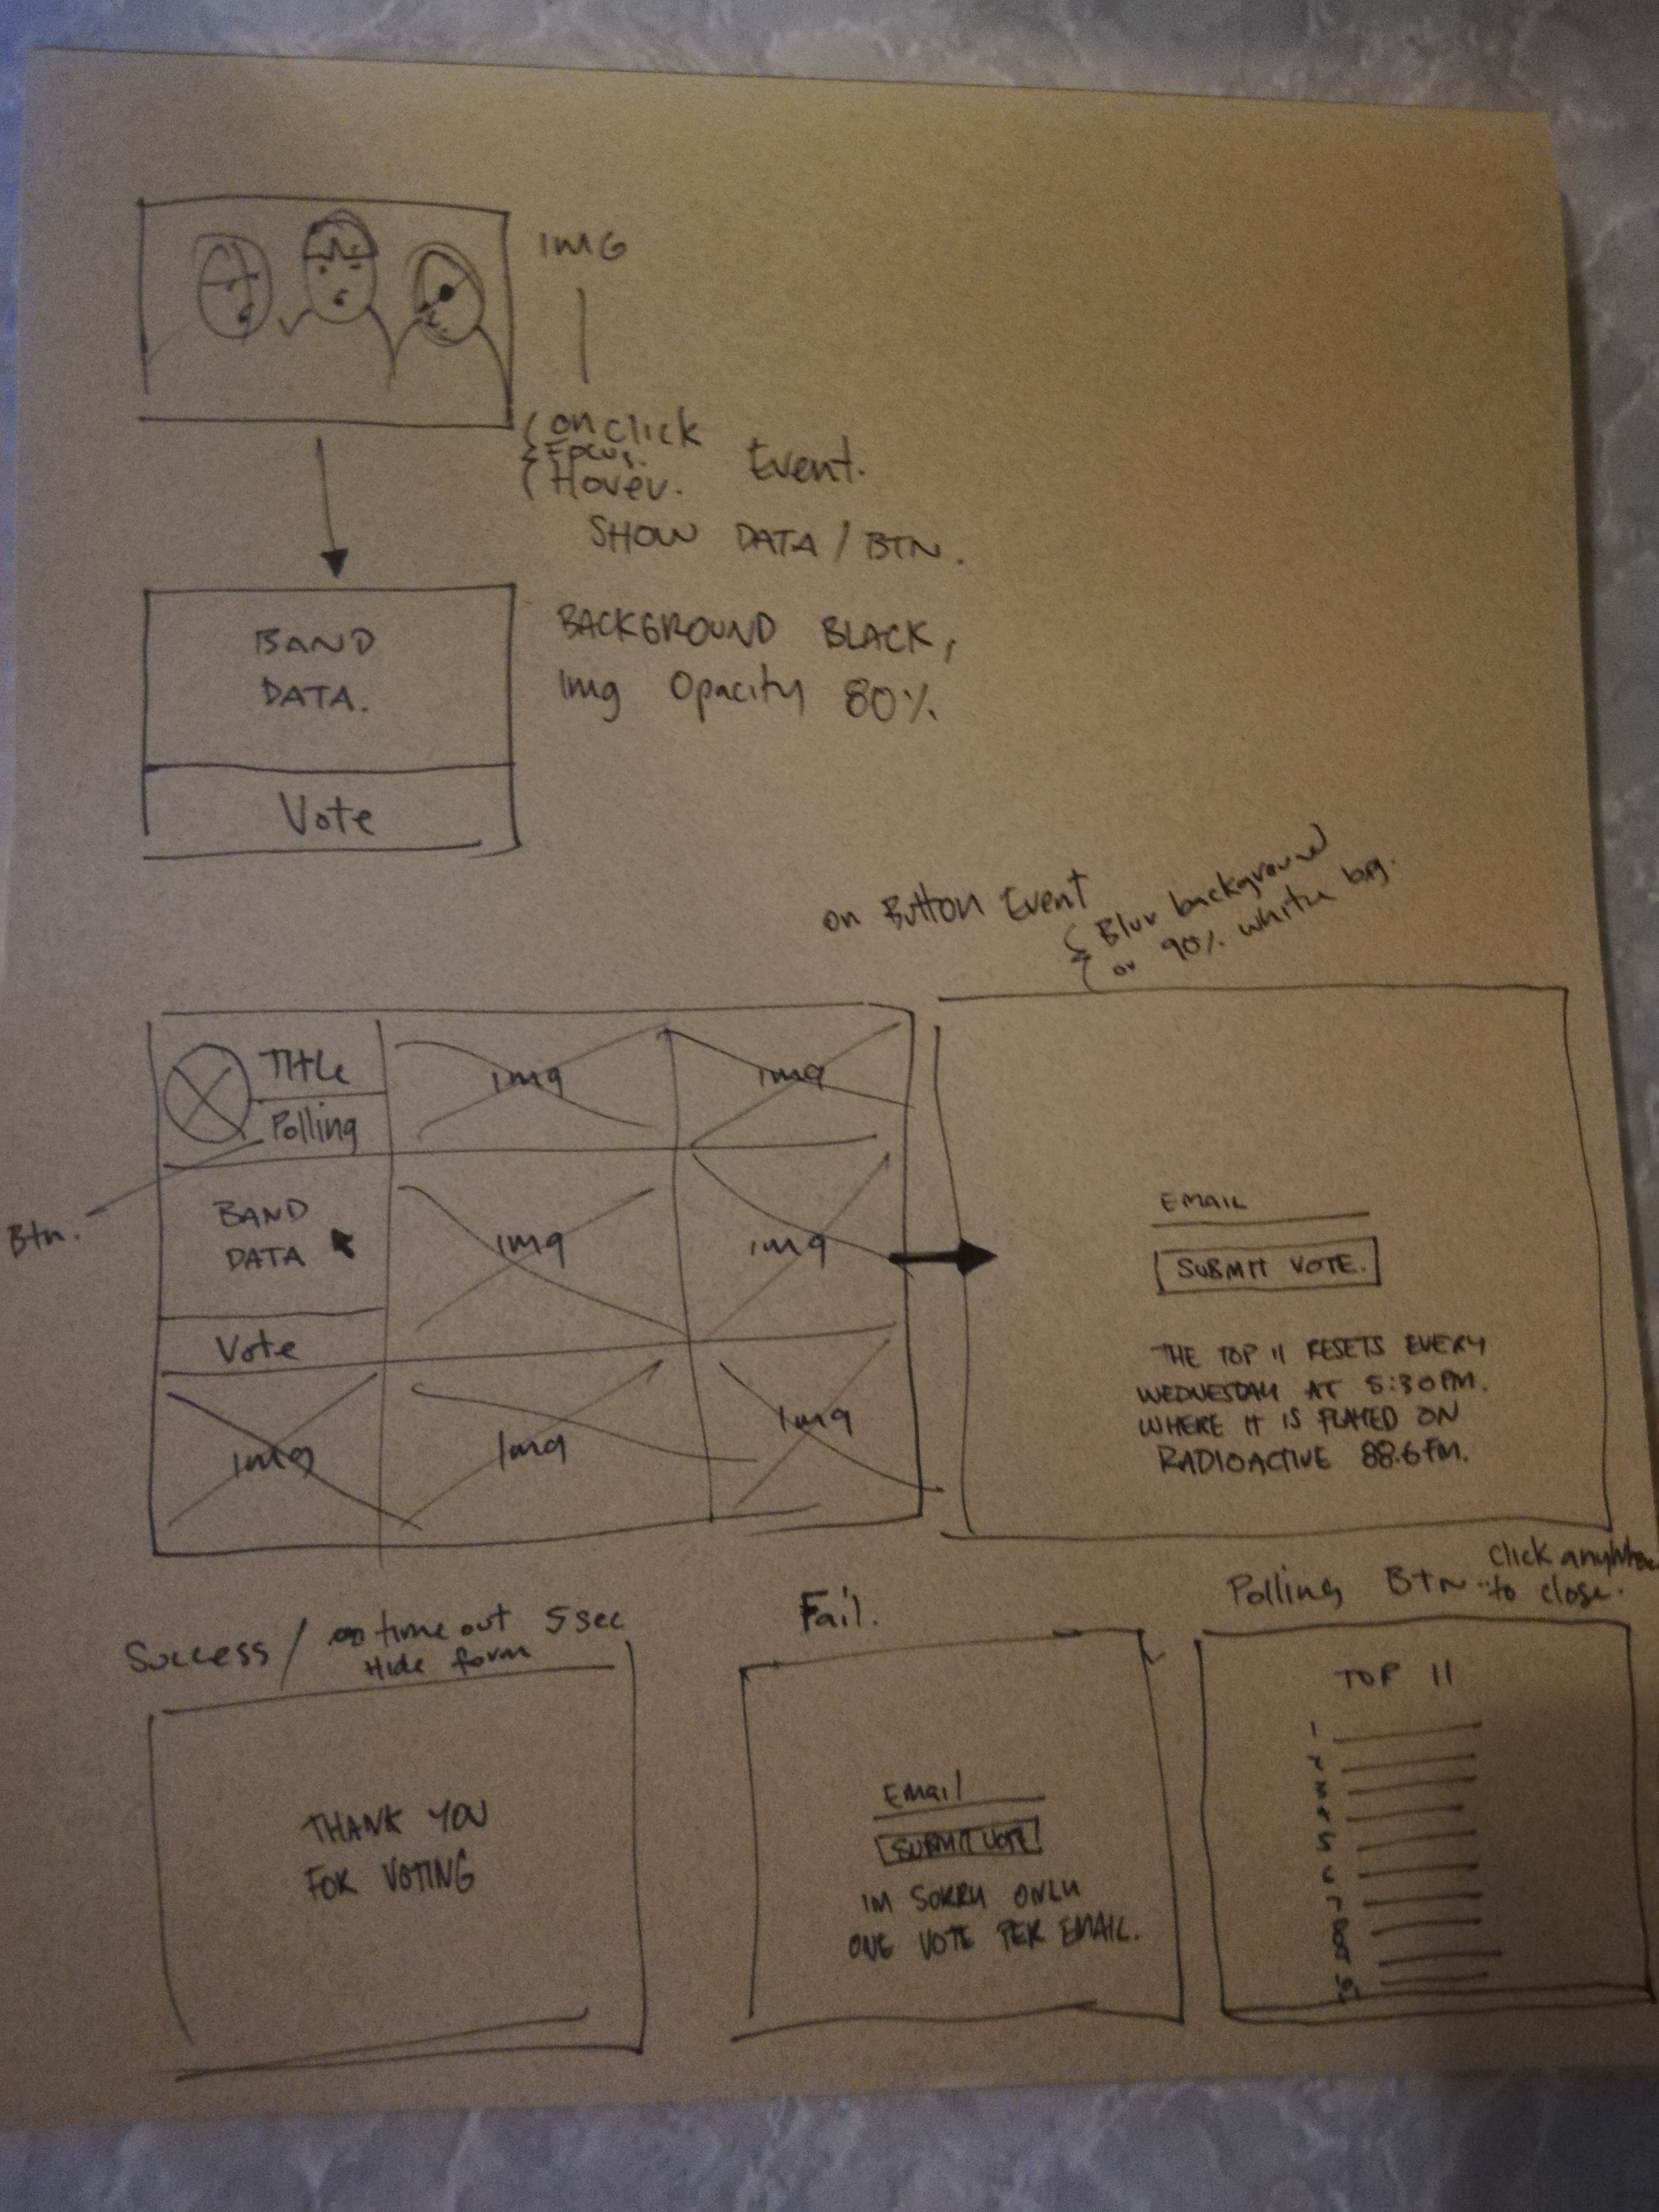 IMG
onclick
Focus.
Hover.
Event.
SHOW DATA / BTN.
BAND
DATA.
Vote
BACKGROUND BLACK,
Img Opacity 80%
on Button Event
Blur background
or 90% white bg.
Title
Polling
Btn.
img
img
BAND
DATA
Vote
img
img
img
Img
Img
EMAIL
SUBMIT VOTE.
THE TOP 11 RESETS EVERY
WEDNESDAY AT 5:30PM.
WHERE IT IS PLAYED ON
RADIOACTIVE 88.6FM.
Success / on time out 5 sec
Hide form
THANK YOU
FOR VOTING
Fail.
Email
SUBMIT VOTE!
IM SORRY ONLY
ONE VOTE PER EMAIL.
Polling BTN.. click anywhere
to close.
TOP 11
1
2
3
4
5
6
7
8
9